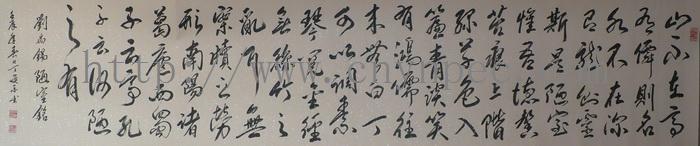 山不在高
有僊則名
水不在深
有龍則靈
斯是陋室
惟吾德馨
苔痕上階
綠草色入
簾青談笑
有鴻儒往
來無白丁
可以調素
琴閱金經
無絲竹之
亂耳無
案牘之勞
形南陽諸
葛廬西蜀
子云亭孔
子云何陋
之有
劉禹錫陋室銘